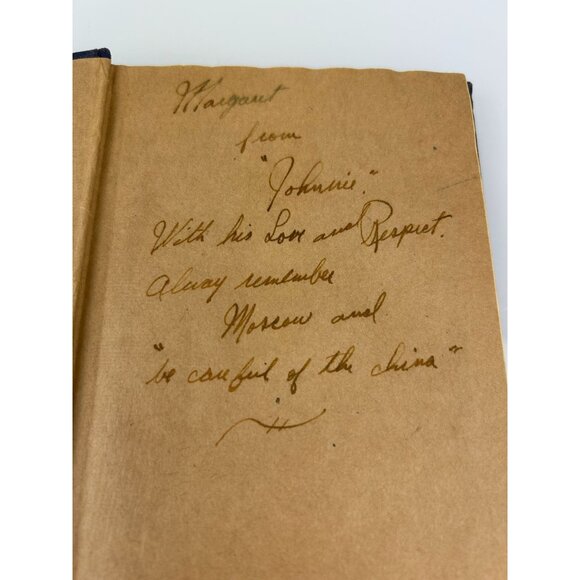 Margaret
from
"Johnnie".
With his Love and Respect.
Alway remember
Moscow and
"be careful of the china"